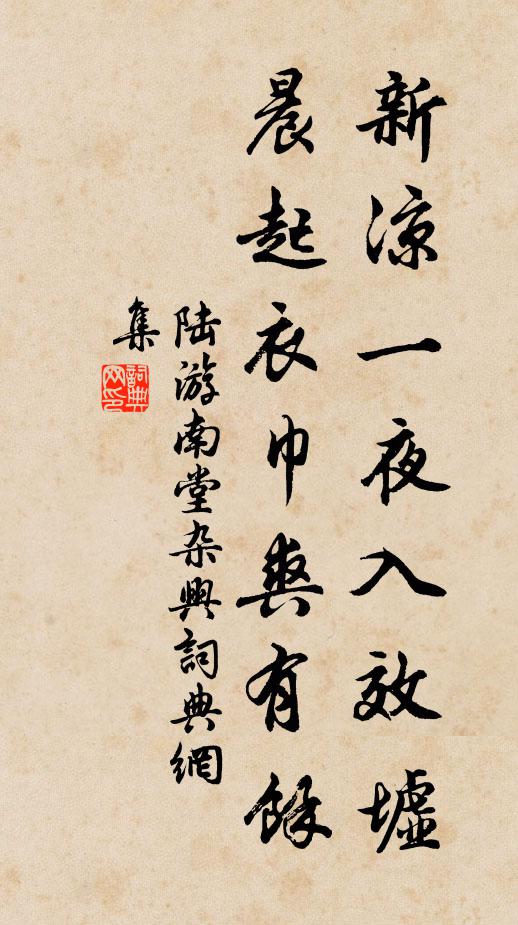 新涼一夜入效墟
晨起衣巾爽有餘
陸游南堂杂興詞典網
集
詞典网印